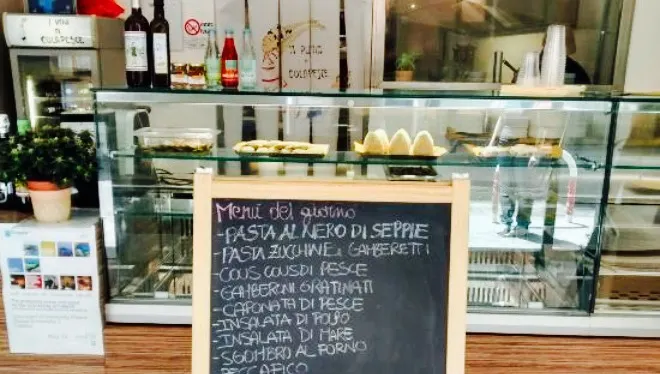 I VINI
DI COLAPESCE
IL PUNTO
DI COLAPESCE
Menú del giorno
-PASTA AL NERO DI SEPPIE
-PASTA ZUCCHINE E GAMBERETTI
-COUS COUS DI PESCE
-GAMBERONI GRATINATI
-CAPONATA DI PESCE
-INSALATA DI POLPO
-INSALATA DI MARE
-SGOMBRO AL FORNO
BECCAFICO